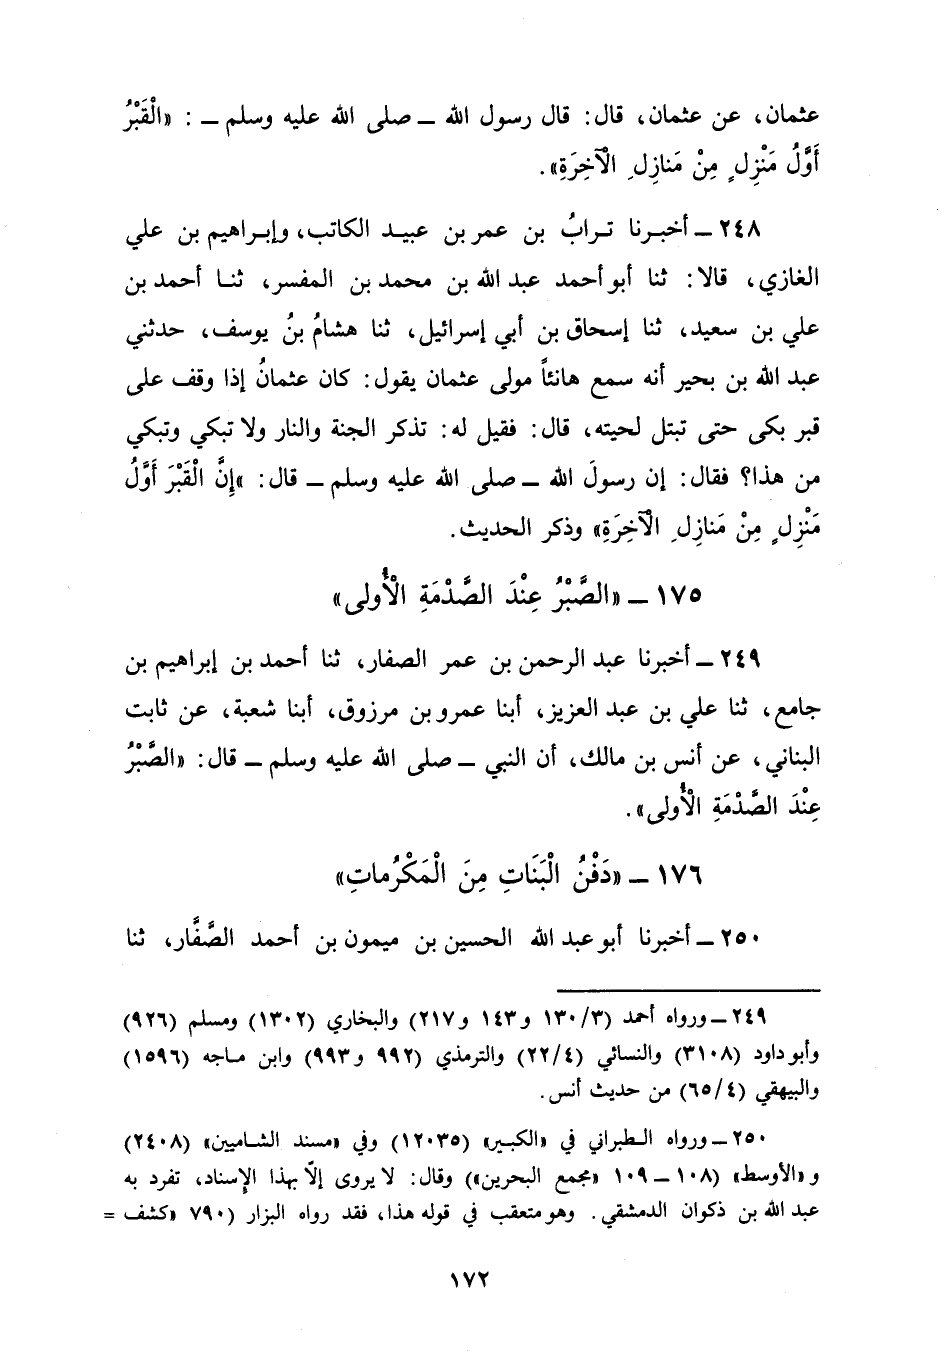 عثمان، عن عثمان، قال: قال رسول الله ــ صلى الله عليه وسلم ــ : «الْقَبْرُ
أَوَّلُ مَنْزِلٍ مِنْ مَنَازِلِ الْآخِرَةِ».
٢٤٨ ــ أخبرنا ترابُ بن عمر بن عبيد الكاتب، وإبراهيم بن علي
الغازي، قالا: ثنا أبو أحمد عبد الله بن محمد بن المفسر، ثنا أحمد بن
علي بن سعيد، ثنا إسحاق بن أبي إسرائيل، ثنا هشامُ بنُ يوسف، حدثني
عبد الله بن بحير أنه سمع هانئاً مولى عثمان يقول: كان عثمانُ إذا وقف على
قبر بكى حتى تبتل لحيته، قال: فقيل له: تذكر الجنة والنار ولا تبكي وتبكي
من هذا؟ فقال: إن رسولَ الله ــ صلى الله عليه وسلم ــ قال: «إِنَّ الْقَبْرَ أَوَّلُ
مَنْزِلٍ مِنْ مَنَازِلِ الْآخِرَةِ» وذكر الحديث.
١٧٥ ــ «الصَّبْرُ عِنْدَ الصَّدْمَةِ الْأُولى»
٢٤٩ ــ أخبرنا عبد الرحمن بن عمر الصفار، ثنا أحمد بن إبراهيم بن
جامع، ثنا علي بن عبد العزيز، أبنا عمرو بن مرزوق، أبنا شعبة، عن ثابت
البناني، عن أنس بن مالك، أن النبي ــ صلى الله عليه وسلم ــ قال: «الصَّبْرُ
عِنْدَ الصَّدْمَةِ الْأُولى».
١٧٦ ــ «دَفْنُ الْبَنَاتِ مِنَ الْمَكْرُماتِ»
٢٥٠ ــ أخبرنا أبو عبد الله الحسين بن ميمون بن أحمد الصَّفَّار، ثنا
٢٤٩ ــ ورواه أحمد (٣/ ١٣٠ و١٤٣ و٢١٧) والبخاري (١٣٠٢) ومسلم (٩٢٦)
وأبو داود (٣١٠٨) والنسائي (٤/ ٢٢) والترمذي (٩٩٢ و٩٩٣) وابن ماجه (١٥٩٦)
والبيهقي (٤/ ٦٥) من حديث أنس.
٢٥٠ ــ ورواه الطبراني في «الكبير» (١٢٠٣٥) وفي «مسند الشاميين» (٢٤٠٨)
و «الأوسط» (١٠٨ ــ ١٠٩ «مجمع البحرين») وقال: لا يروى إلّا بهذا الإسناد، تفرد به
عبد الله بن ذكوان الدمشقي. وهو متعقب في قوله هذا، فقد رواه البزار (٧٩٠ «كشف =
١٧٢